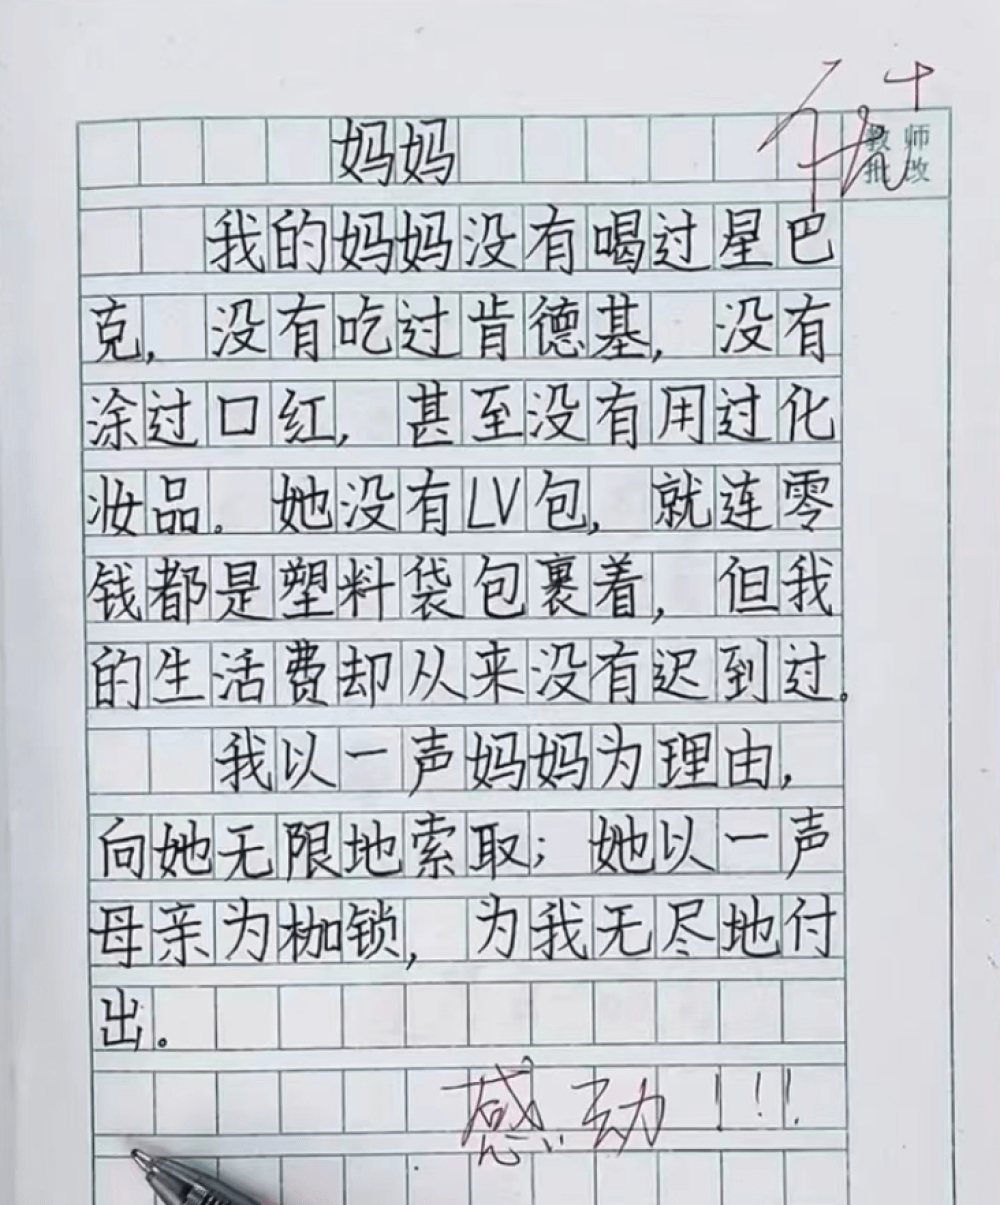 优+
教师
批改
妈妈
我的妈妈没有喝过星巴
克，没有吃过肯德基，没有
涂过口红，甚至没有用过化
妆品。她没有LV包，就连零
钱都是塑料袋包裹着，但我
的生活费却从来没有迟到过。
我以一声妈妈为理由，
向她无限地索取；她以一声
母亲为枷锁，为我无尽地付
出。
感动！！！